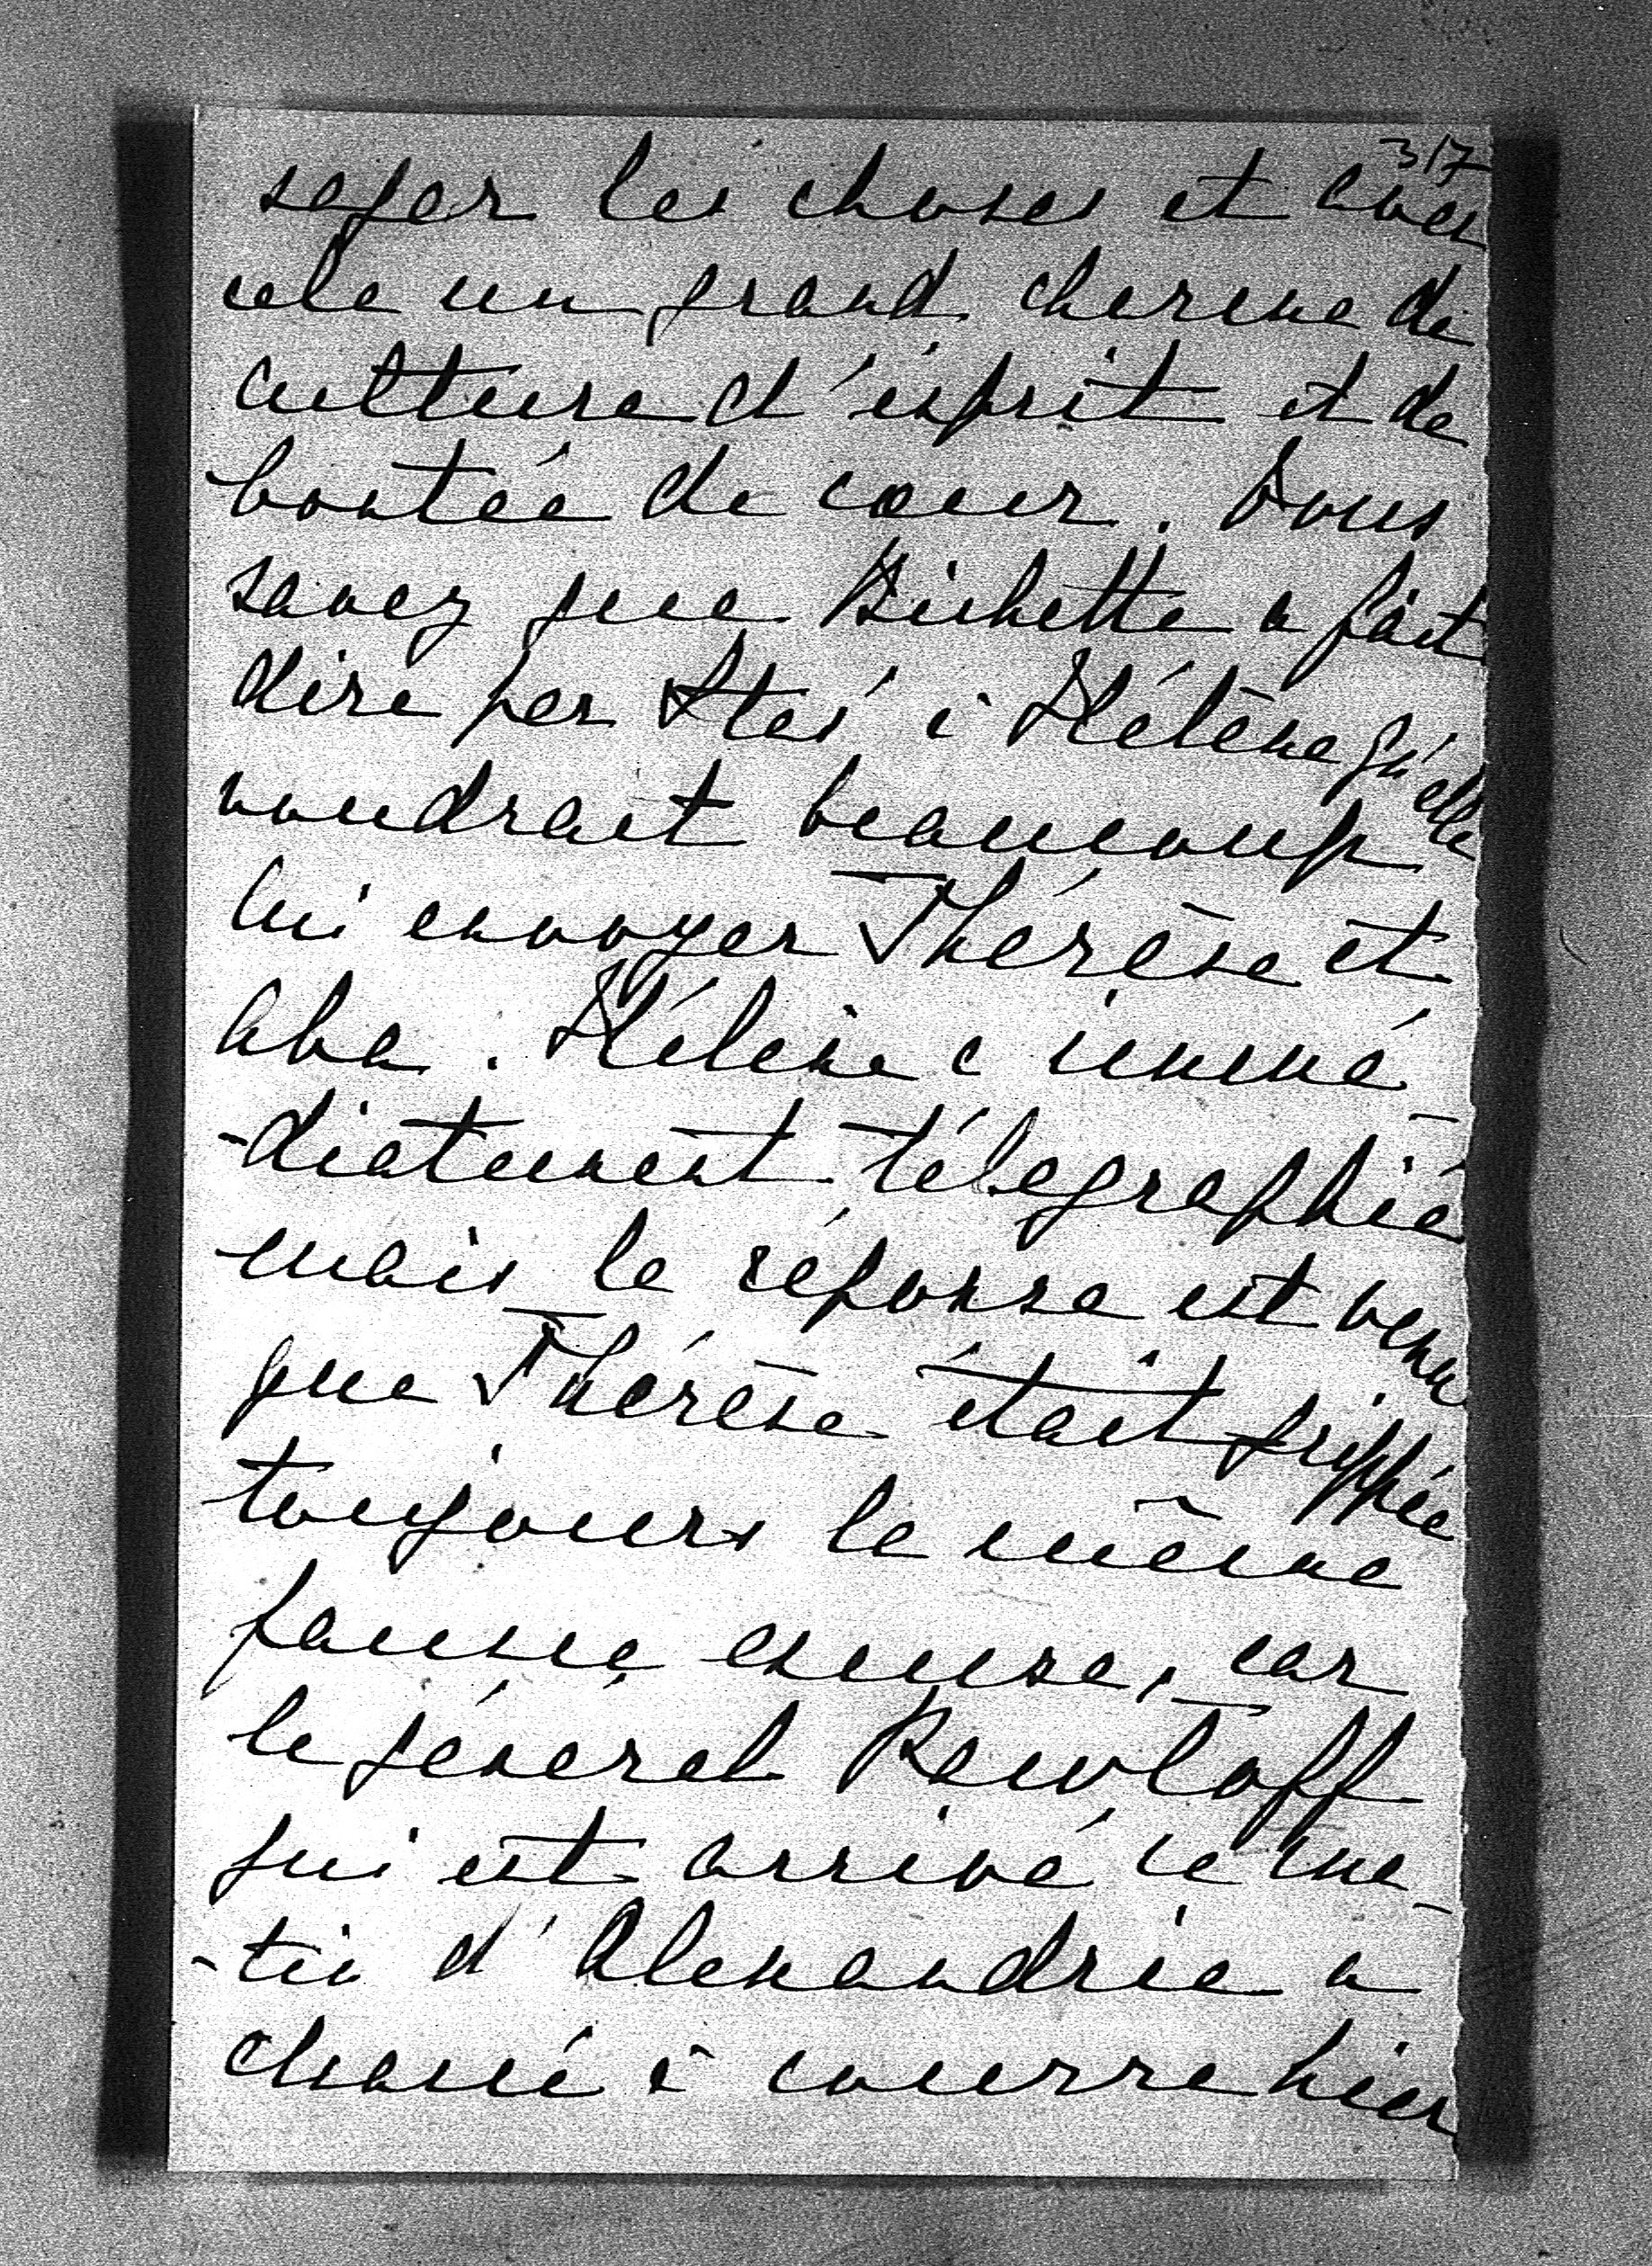 317
seger les choses et avec
cela un grand charme de
culture d'ésprit et de
bontée de cœur. Vous
savez que Bichette a fait
dire par Ites à Hélène qu'elle
voudrait beaucoup
lui envoyer Thérèse et
Aba. Hélène a immé-
-diatement télégraphié
mais la réponse est venu
que Thérèse était grippée
toujours la même
fausse excuse, car
le général Pawloff
qui est arrivé ce ma-
-tin d'Alexandrie a
chassé à courre hier